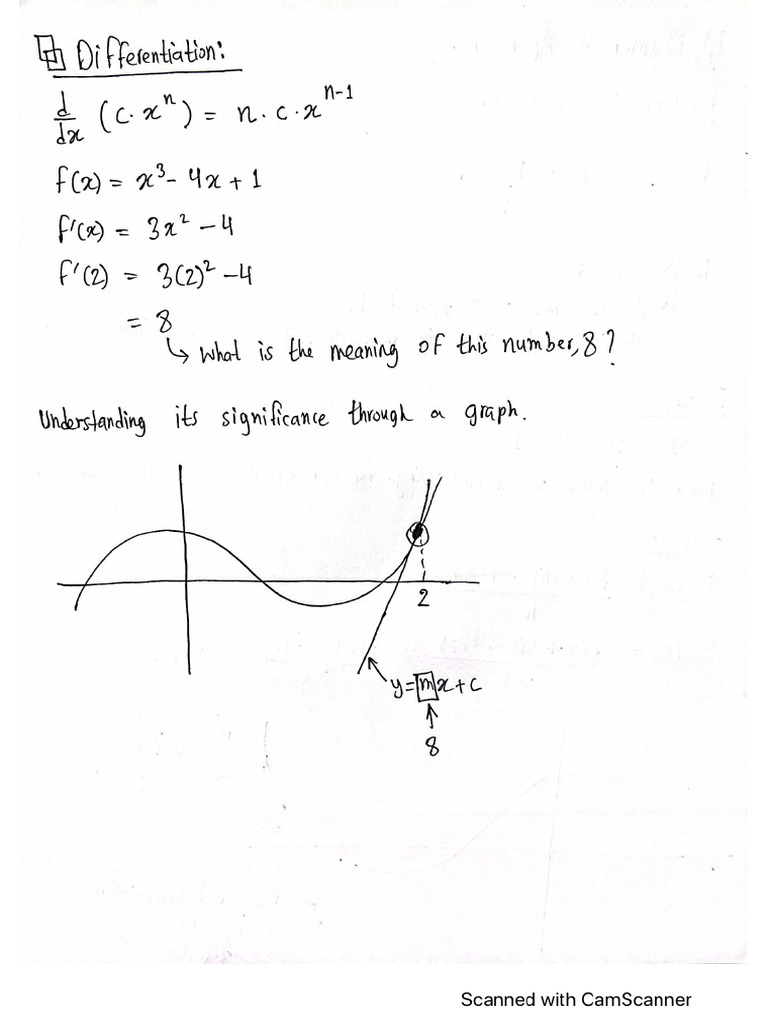 Differentiation:
d/dx (c·xⁿ) = n·c·xⁿ⁻¹
f(x) = x³ - 4x + 1
f'(x) = 3x² - 4
f'(2) = 3(2)² - 4
= 8
↳ What is the meaning of this number, 8?
Understanding its significance through a graph.
2
y = mx + c
↑
8
Scanned with CamScanner